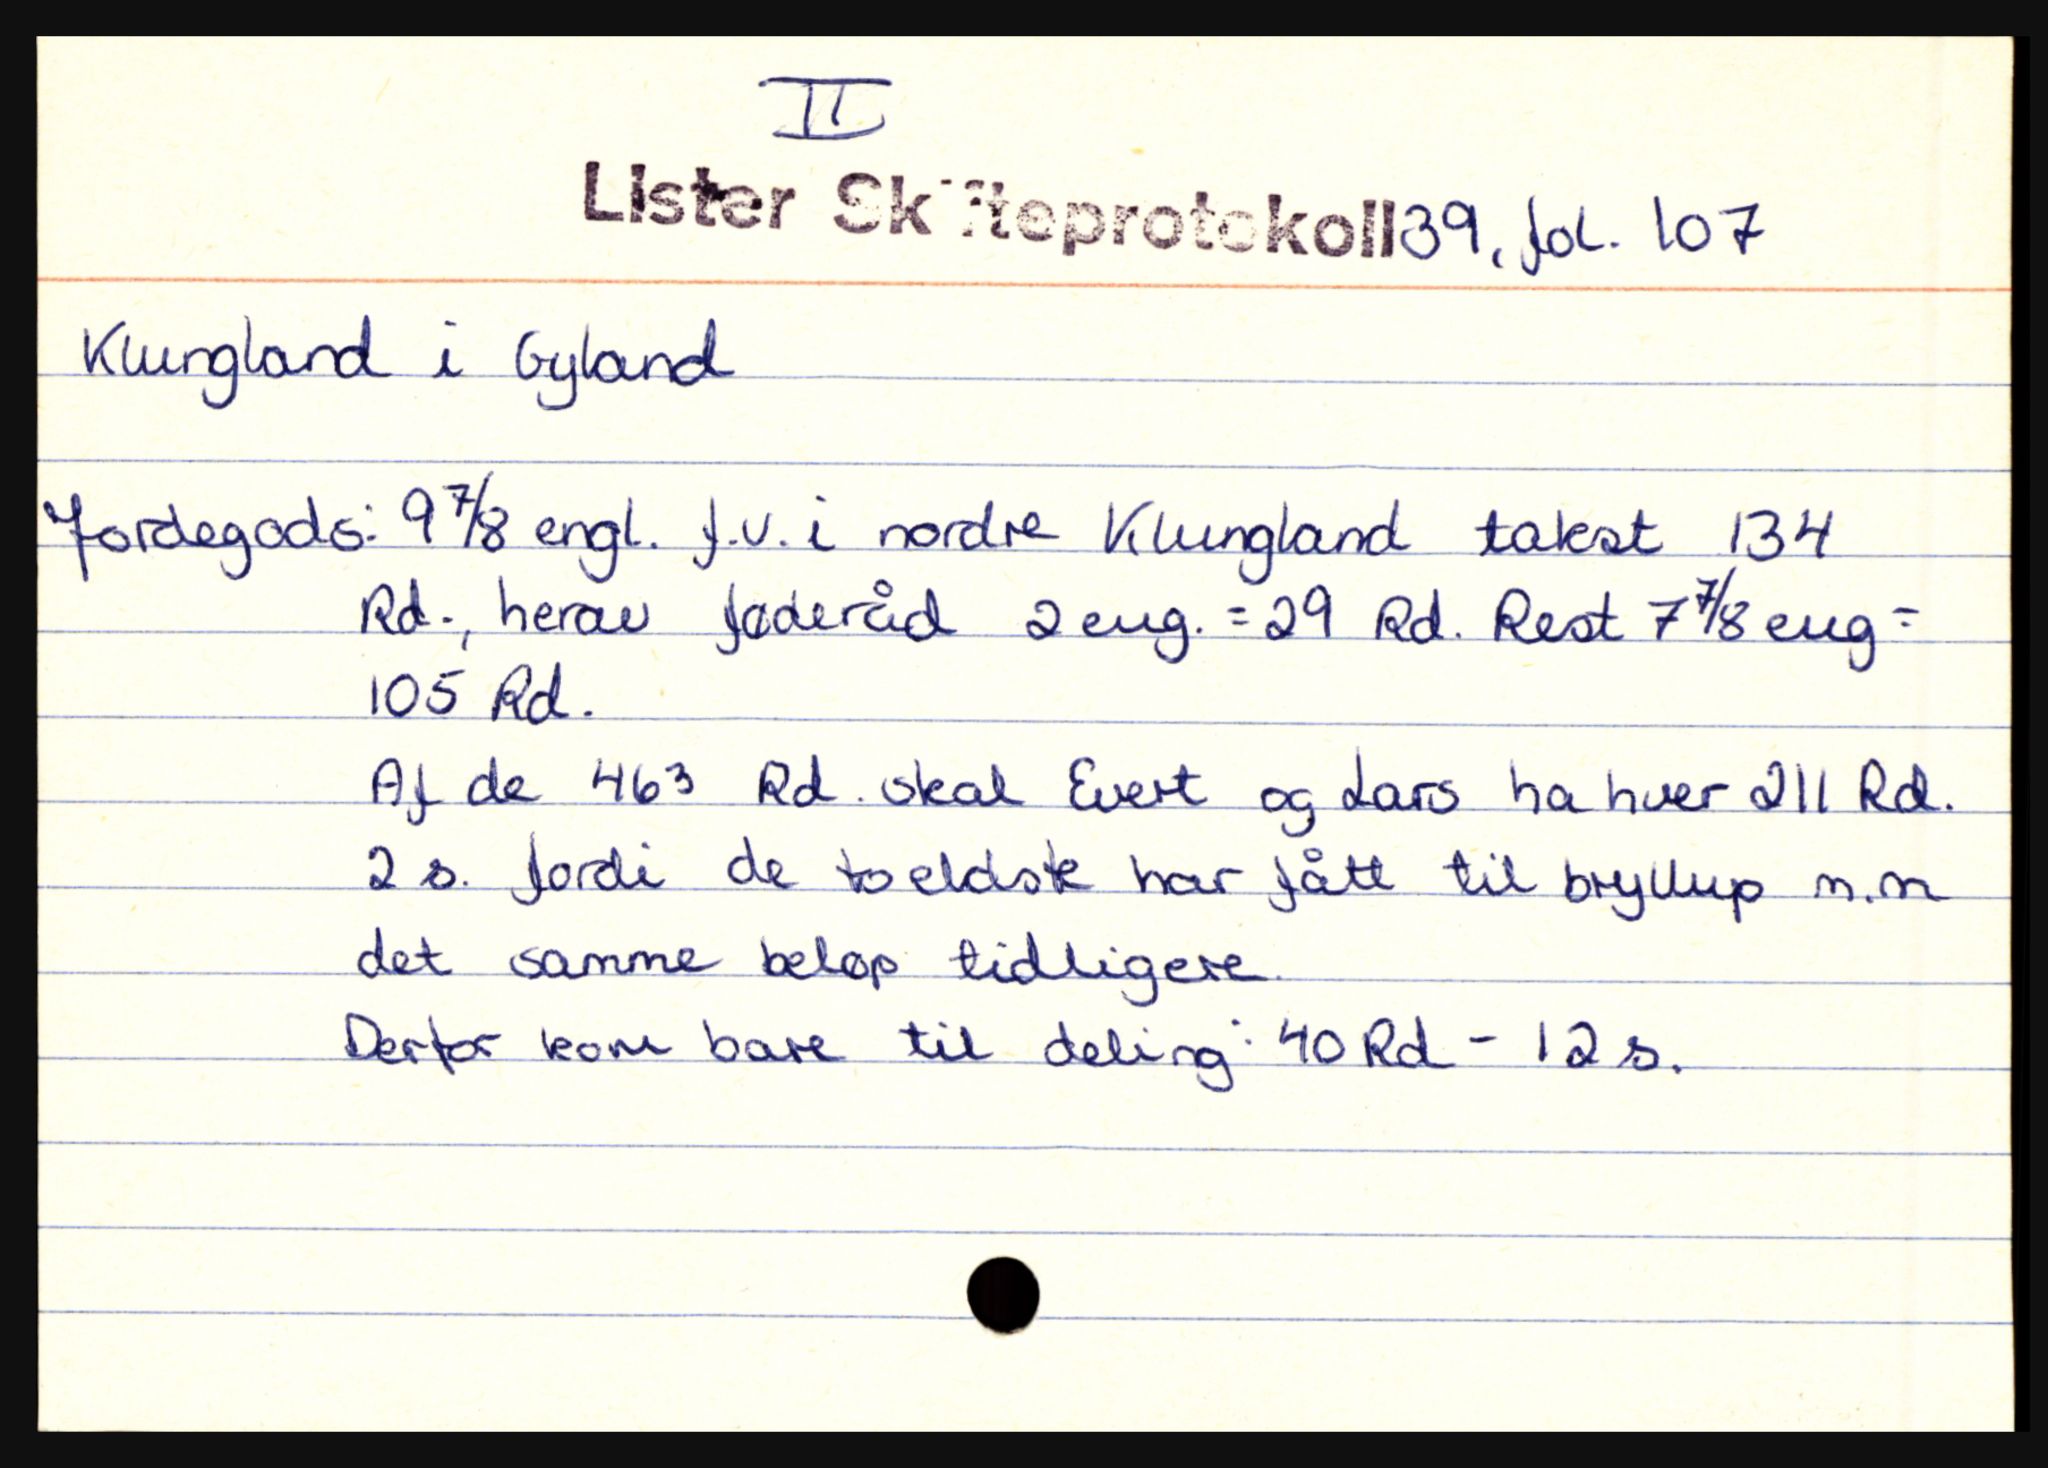 II
Lister Skifteprotokoll 39, fol. 107
Klungland i Gyland
Jordegods: 9 7/8 engl. f.v. i nordre Klungland takst 134
Rd., herav føderåd 2 eng. = 29 Rd. Rest 7 7/8 eng =
105 Rd.
Af de 463 Rd. skal Evert og Lars ha hver 211 Rd.
2 s. fordi de to eldste har fått til bryllup m.m
det samme beløp tidligere.
Derfor kom bare til deling: 40 Rd - 12 s.